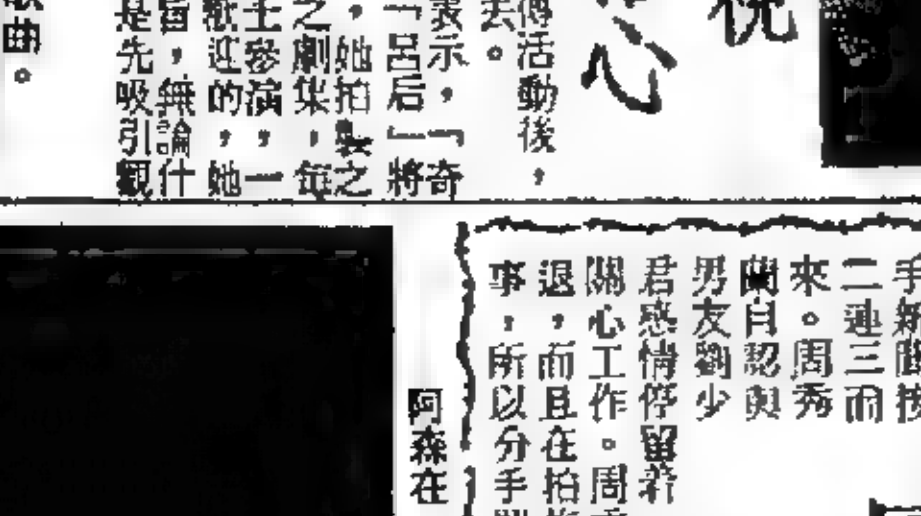 傳活動後，
去。
表示，「奇
「呂后」將
，她拍裝之
之劇集，每
士參演，一
歡迎的，她
旨，無論什
是先吸引觀
歌曲。
手新聞接
二連三而
來。周秀
蘭自認與
男友劉少
君感情停留若
關心工作。周
退，而且在拍
事，所以分手
阿森在